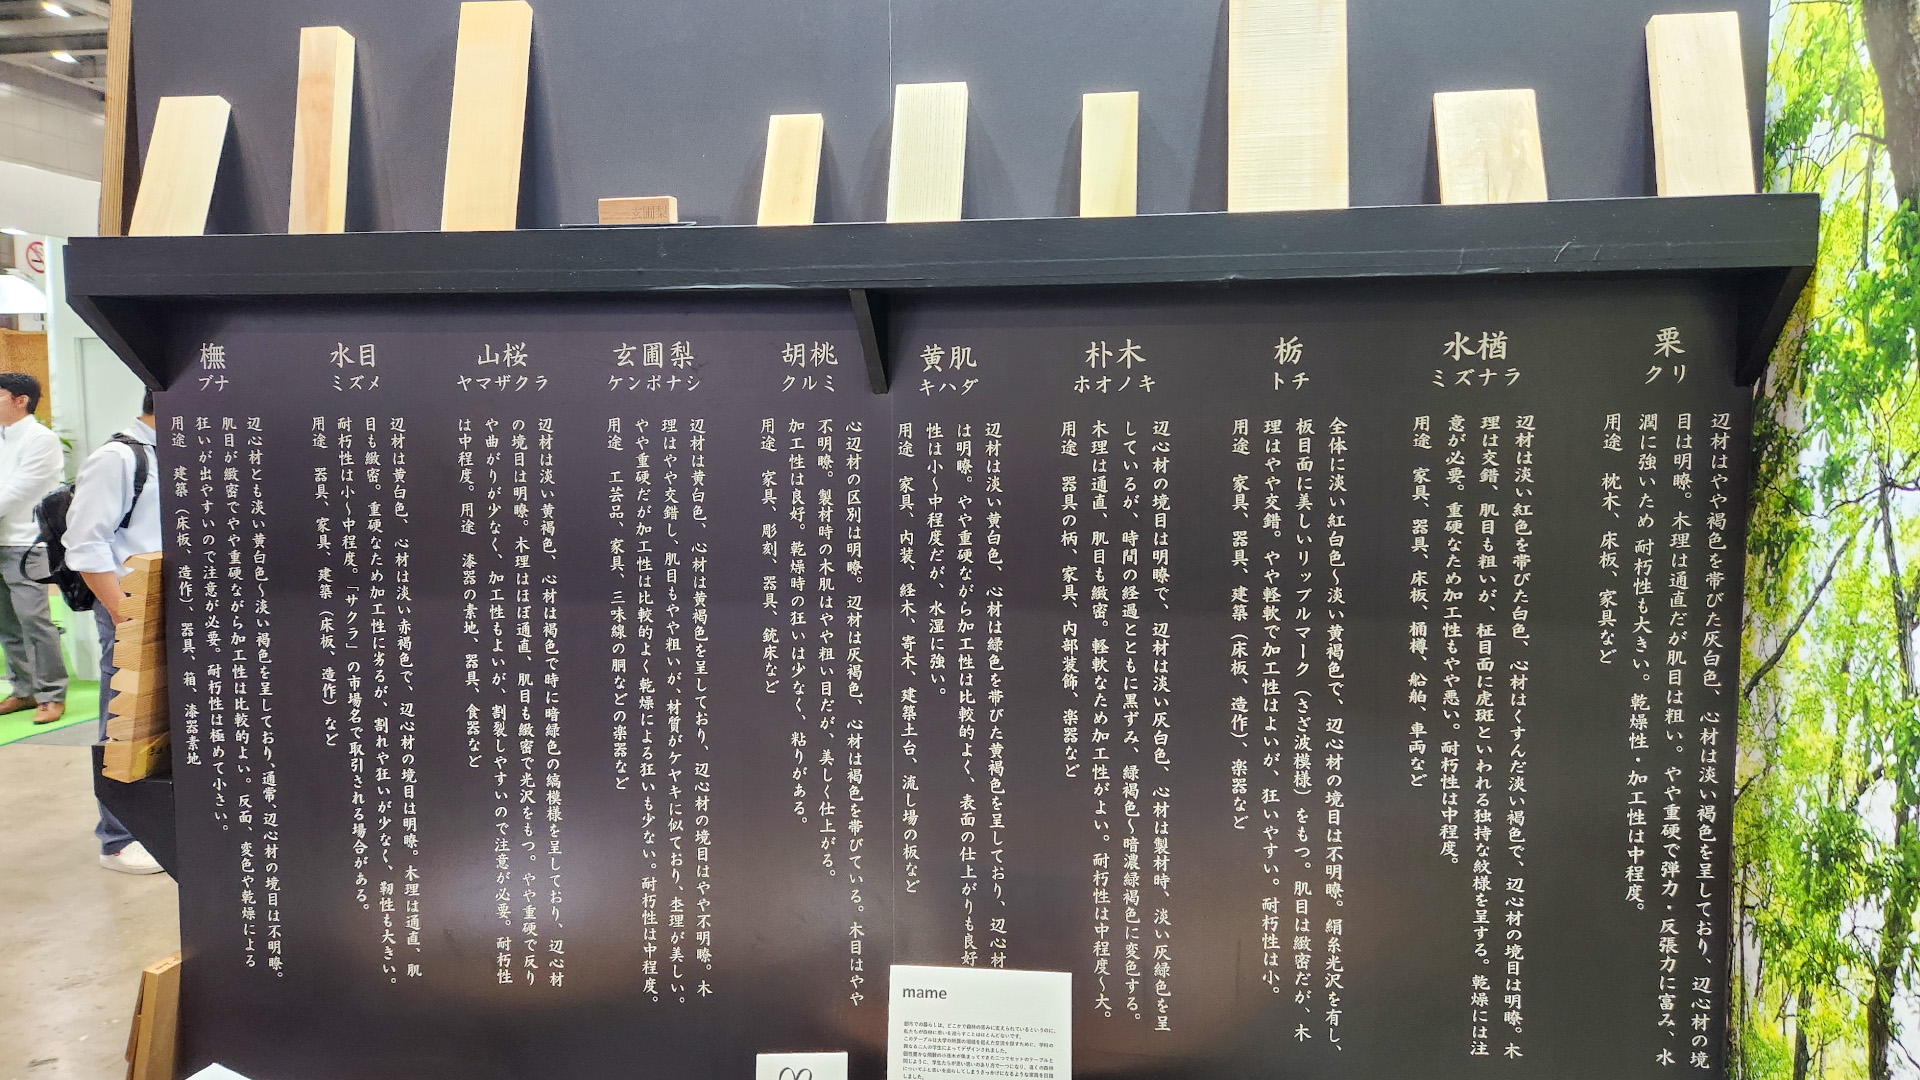 栗
クリ
辺材はやや褐色を帯びた灰白色、心材は淡い褐色を呈しており、辺心材の境
目は明瞭。木理は通直だが肌目は粗い。やや重硬で弾力・反張力に富み、水
潤に強いため耐朽性も大きい。乾燥性・加工性は中程度。
用途 枕木、床板、家具など
水楢
ミズナラ
辺材は淡い紅色を帯びた白色、心材はくすんだ淡い褐色で、辺心材の境目は明瞭。木
理は交錯、肌目も粗いが、柾目面に虎斑といわれる独持な紋様を呈する。乾燥には注
意が必要。重硬なため加工性もやや悪い。耐朽性は中程度。
用途 家具、器具、床板、桶樽、船舶、車両など
栃
トチ
全体に淡い紅白色〜淡い黄褐色で、辺心材の境目は不明瞭。絹糸光沢を有し、
板目面に美しいリップルマーク（さざ波模様）をもつ。肌目は緻密だが、木
理はやや交錯。やや軽軟で加工性はよいが、狂いやすい。耐朽性は小。
用途 家具、器具、建築（床板、造作）、楽器など
朴木
ホオノキ
辺心材の境目は明瞭で、辺材は淡い灰白色、心材は製材時、淡い灰緑色を呈
しているが、時間の経過とともに黒ずみ、緑褐色〜暗濃緑褐色に変色する。
木理は通直、肌目も緻密。軽軟なため加工性がよい。耐朽性は中程度〜大。
用途 器具の柄、家具、内部装飾、楽器など
黄肌
キハダ
辺材は淡い黄白色、心材は緑色を帯びた黄褐色を呈しており、辺心材
は明瞭。やや重硬ながら加工性は比較的よく、表面の仕上がりも良好
性は小〜中程度だが、水湿に強い。
用途 家具、内装、経木、寄木、建築土台、流し場の板など
胡桃
クルミ
心辺材の区別は明瞭。辺材は灰褐色、心材は褐色を帯びている。木目はやや
不明瞭。製材時の木肌はやや粗い目だが、美しく仕上がる。
加工性は良好。乾燥時の狂いは少なく、粘りがある。
用途 家具、彫刻、器具、銃床など
玄圃梨
ケンポナシ
辺材は黄白色、心材は黄褐色を呈しており、辺心材の境目はやや不明瞭。木
理はやや交錯し、肌目もやや粗いが、材質がケヤキに似ており、杢理が美しい。
やや重硬だが加工性は比較的よく乾燥による狂いも少ない。耐朽性は中程度。
用途 工芸品、家具、三味線の胴などの楽器など
山桜
ヤマザクラ
辺材は淡い黄褐色、心材は褐色で時に暗緑色の縞模様を呈しており、辺心材
の境目は明瞭。木理はほぼ通直、肌目も緻密で光沢をもつ。やや重硬で反り
や曲がりが少なく、加工性もよいが、割裂しやすいので注意が必要。耐朽性
は中程度。用途 漆器の素地、器具、食器など
水目
ミズメ
辺材は黄白色、心材は淡い赤褐色で、辺心材の境目は明瞭。木理は通直、肌
目も緻密。重硬なため加工性に劣るが、割れや狂いが少なく、靭性も大きい。
耐朽性は小〜中程度。「サクラ」の市場名で取引される場合がある。
用途 器具、家具、建築（床板、造作）など
橅
ブナ
辺心材とも淡い黄白色〜淡い褐色を呈しており、通常、辺心材の境目は不明瞭。
肌目が緻密でやや重硬ながら加工性は比較的よい。反面、変色や乾燥による
狂いが出やすいので注意が必要。耐朽性は極めて小さい。
用途 建築（床板、造作）、器具、箱、漆器素地
玄圃梨
mame